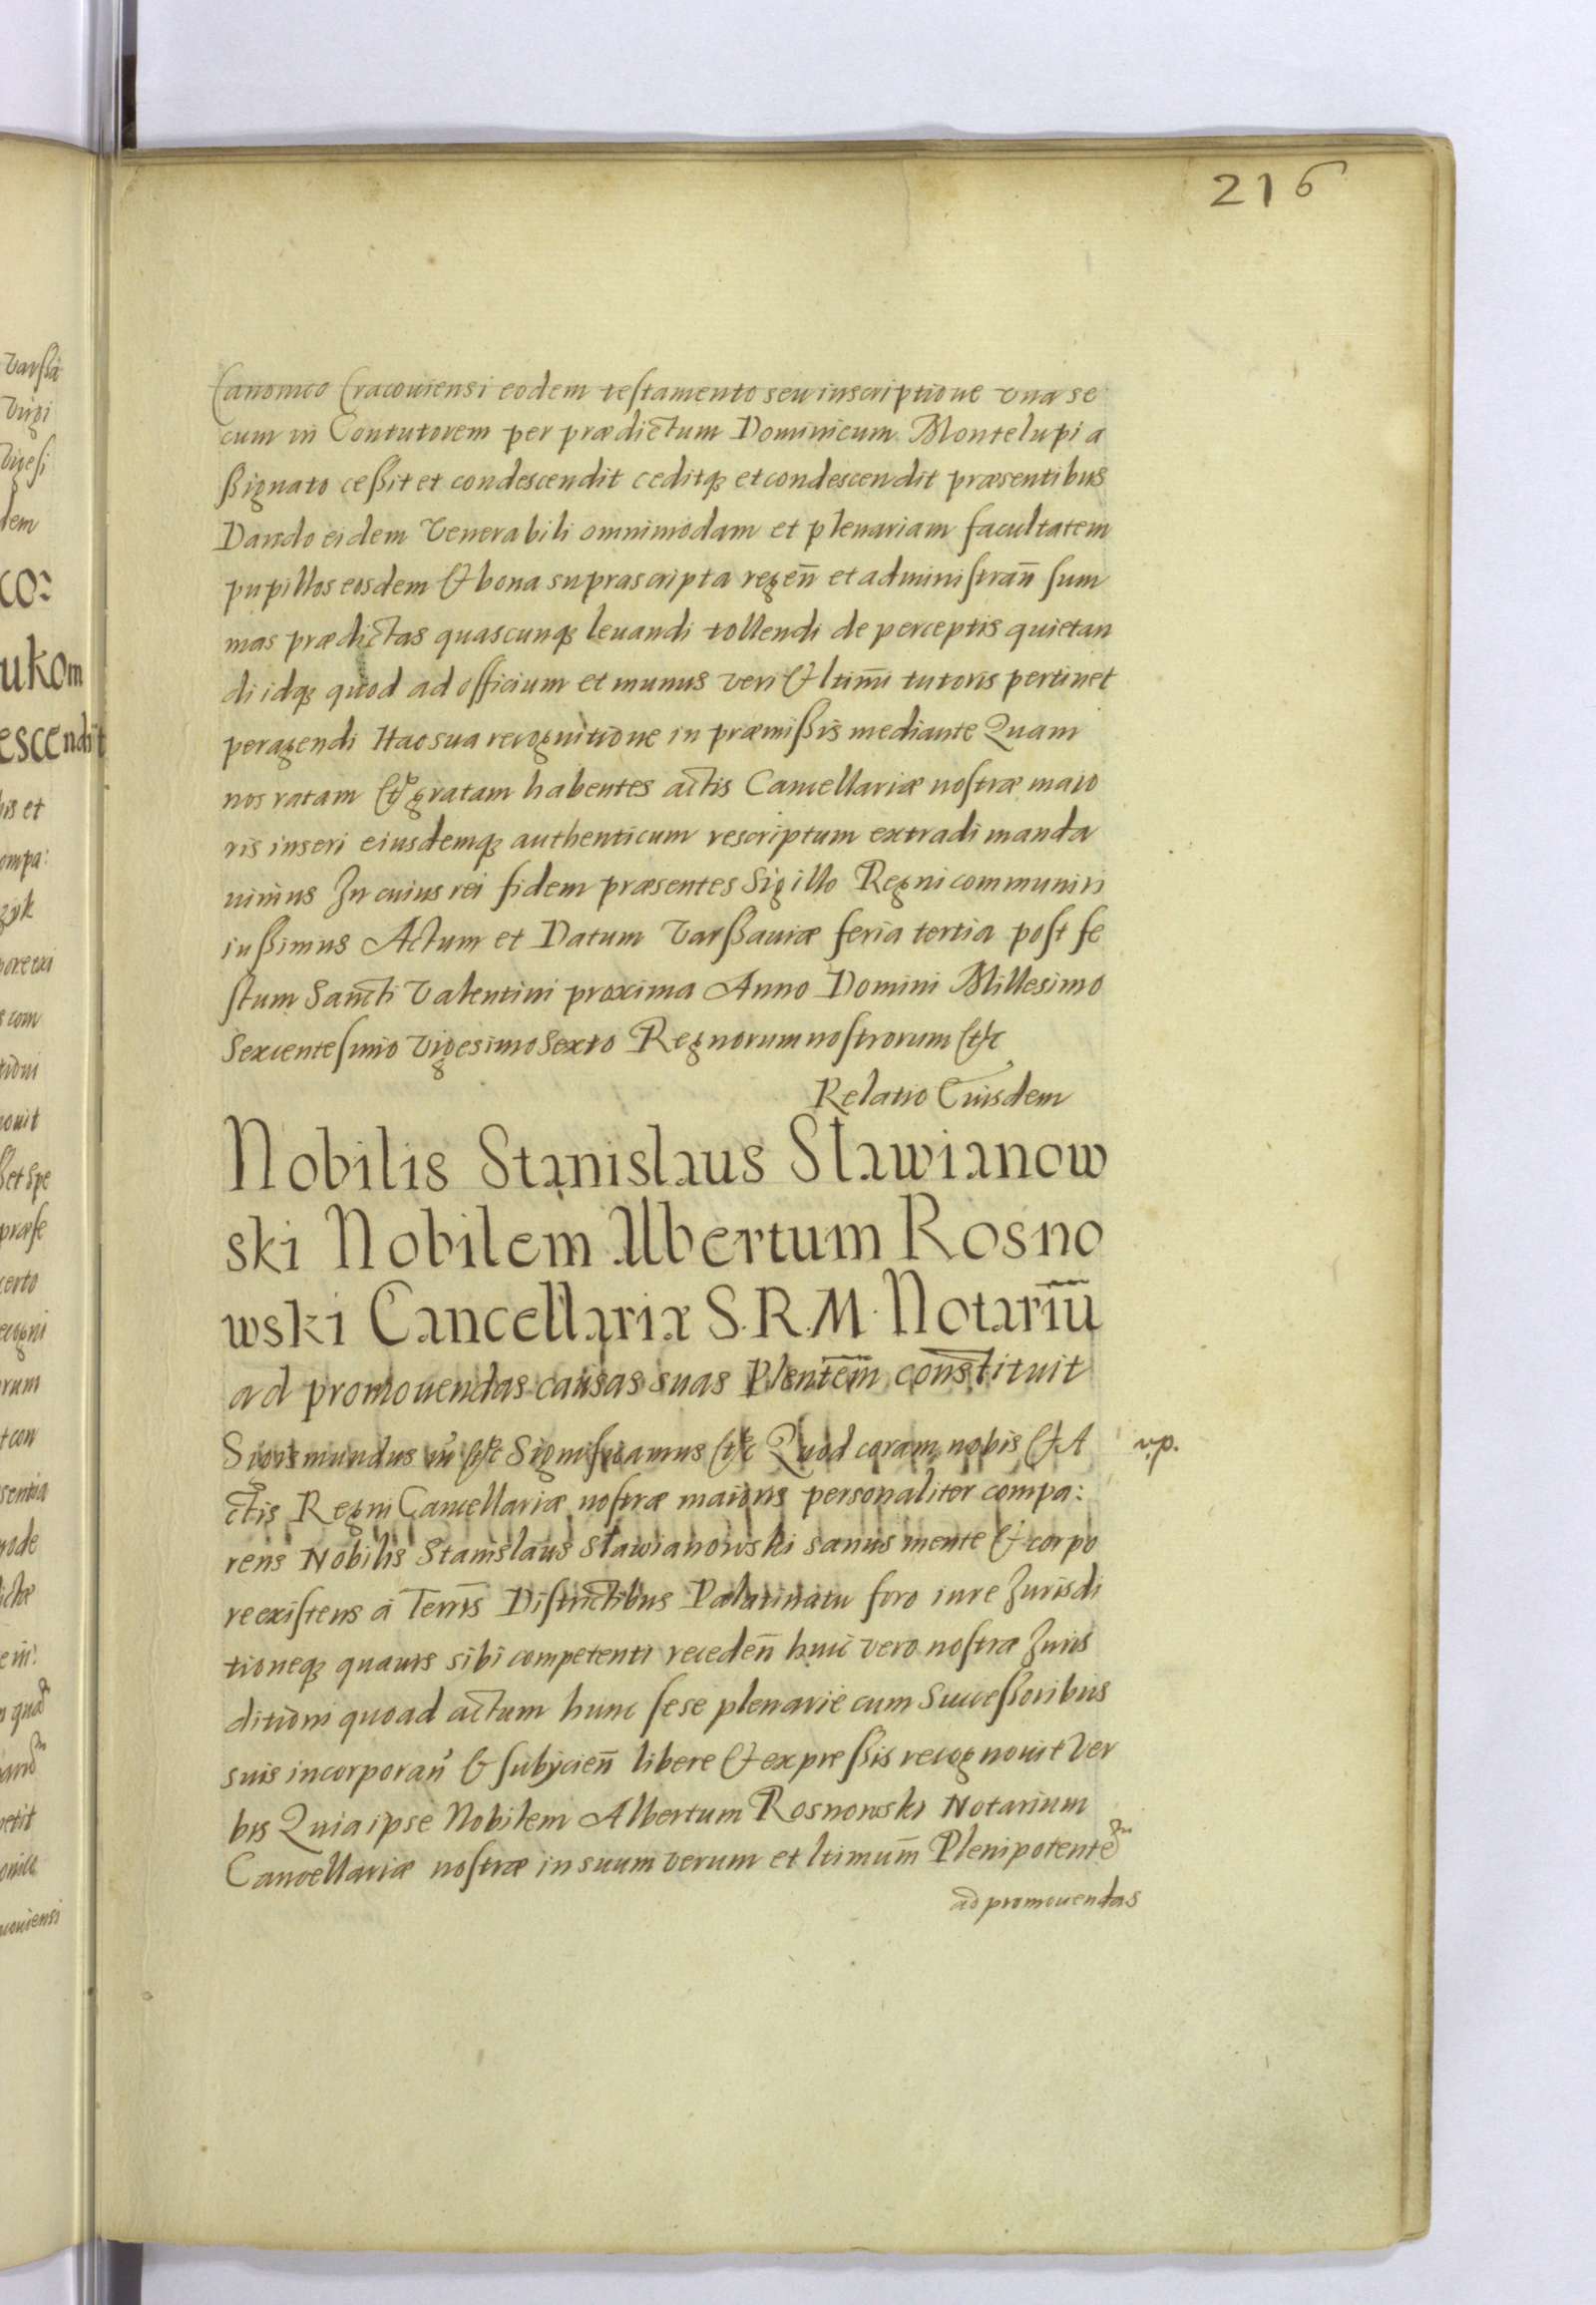 216
Canonico Cracouiensi eodem testamento seu inscriptione vna se
cum in Contutorem per prædictum Dominicum Montelupi a
ßignato ceßit et condescendit ceditq; et condescendit præsentibus
Dando eidem Venerabili omnimodam et plenariam facultatem
pupillos eosdem & bona suprascripta regen̄ et administran̄ sum
mas prædictas quascunq; leuandi tollendi de perceptis quietan
di idq; quod ad officium et munus veri & ltimi tutoris pertinet
peragendi Hac sua recognitione in præmißis mediante Quam
nos ratam & gratam habentes actis Cancellariæ nostræ maio
ris inseri eiusdemq; authenticum rescriptum extradi manda
uimus In cuius rei fidem præsentes Sigillo Regni communiri
iußimus Actum et Datum Varßauiæ feria tertia post fe
stum Sancti Valentini proxima Anno Domini Millesimo
Sexcentesimo Vigesimo Sexto Regnorum nostrorum &c
Relatio Eiusdem
Nobilis Stanislaus Sławianow
ski Nobilem Albertum Rosno
wski Cancellariæ S. R. M. Notariū
ad promouendas causas suas Plentem̄ constituit
Sigismundus &c Significamus &c Quod coram nobis & A
ctis Regni Cancellariæ nostræ maioris personaliter compa:
rens Nobilis Stanislaus Sławianowski sanus mente & corpo
re existens a Terris Districtibus Palatinatu foro iure Jurisdi
tioneq; quauis sibi competenti receden̄ huic vero nostræ Juris
ditioni quoad actum hunc sese plenarie cum Succeßoribus
suis incorporan̄ & subijcien̄ libere & expreßis recognouit Ver
bis Quia ipse Nobilem Albertum Rosnowski Notarium
Cancellariæ nostræ in suum verum et ltimum̄ Plenipotente͂
ad promouendas